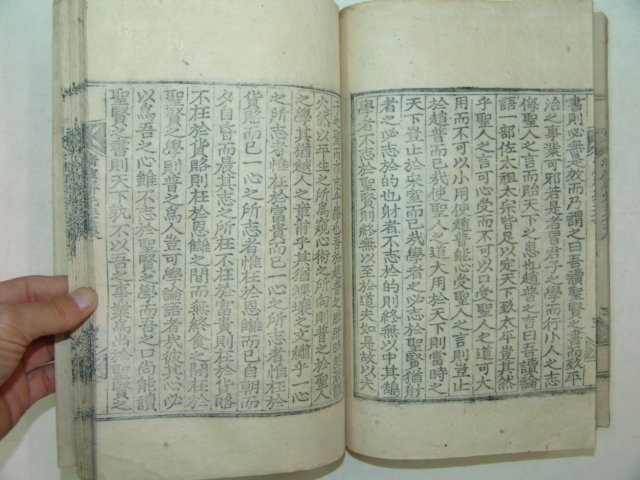 書則必無是效而乃謂人曰吾讀聖賢之書而致平
治之事業可邪若是者習君子之學而行小人之志
侮聖人之言而貽天下之患也趙普之言曰吾以論
語一部佐太祖太宗皆足以定天下致太平豈其然
乎聖人之言可心受而不可以口受聖人之道可大
用而不可以小用使趙普能心受聖人之言則豈止
於趙普而已我使聖人之道大用於天下則當時之
天下豈止於宋室而已我學者之必志於聖賢猶射
者之必志於的也射者不志於的則終無以中其鵠
學者不志於聖賢則終無以至於道夫如是故以夫
子之聖
火然以平生之所爲窺心術之所向則普之於聖人
之學其猶越人之於章甫乎其猶裸壤之文繡乎一心
之所志者惟在於富貴而已一心之所志者惟在於
貨賂而已一心之所志者惟在於恩讎而已自朝而
夕自昏而晨其志之所在不在於富貴則在於貨賂
不在於貨賂則在於恩讎之間而無終食之間在於
聖賢之學則普之爲人豈可學論語者我彼其心必
以爲吾之心雖不志於聖賢之學而吾之口尚能讀
聖賢之書則天下孰不以吾之事業爲出於聖賢之